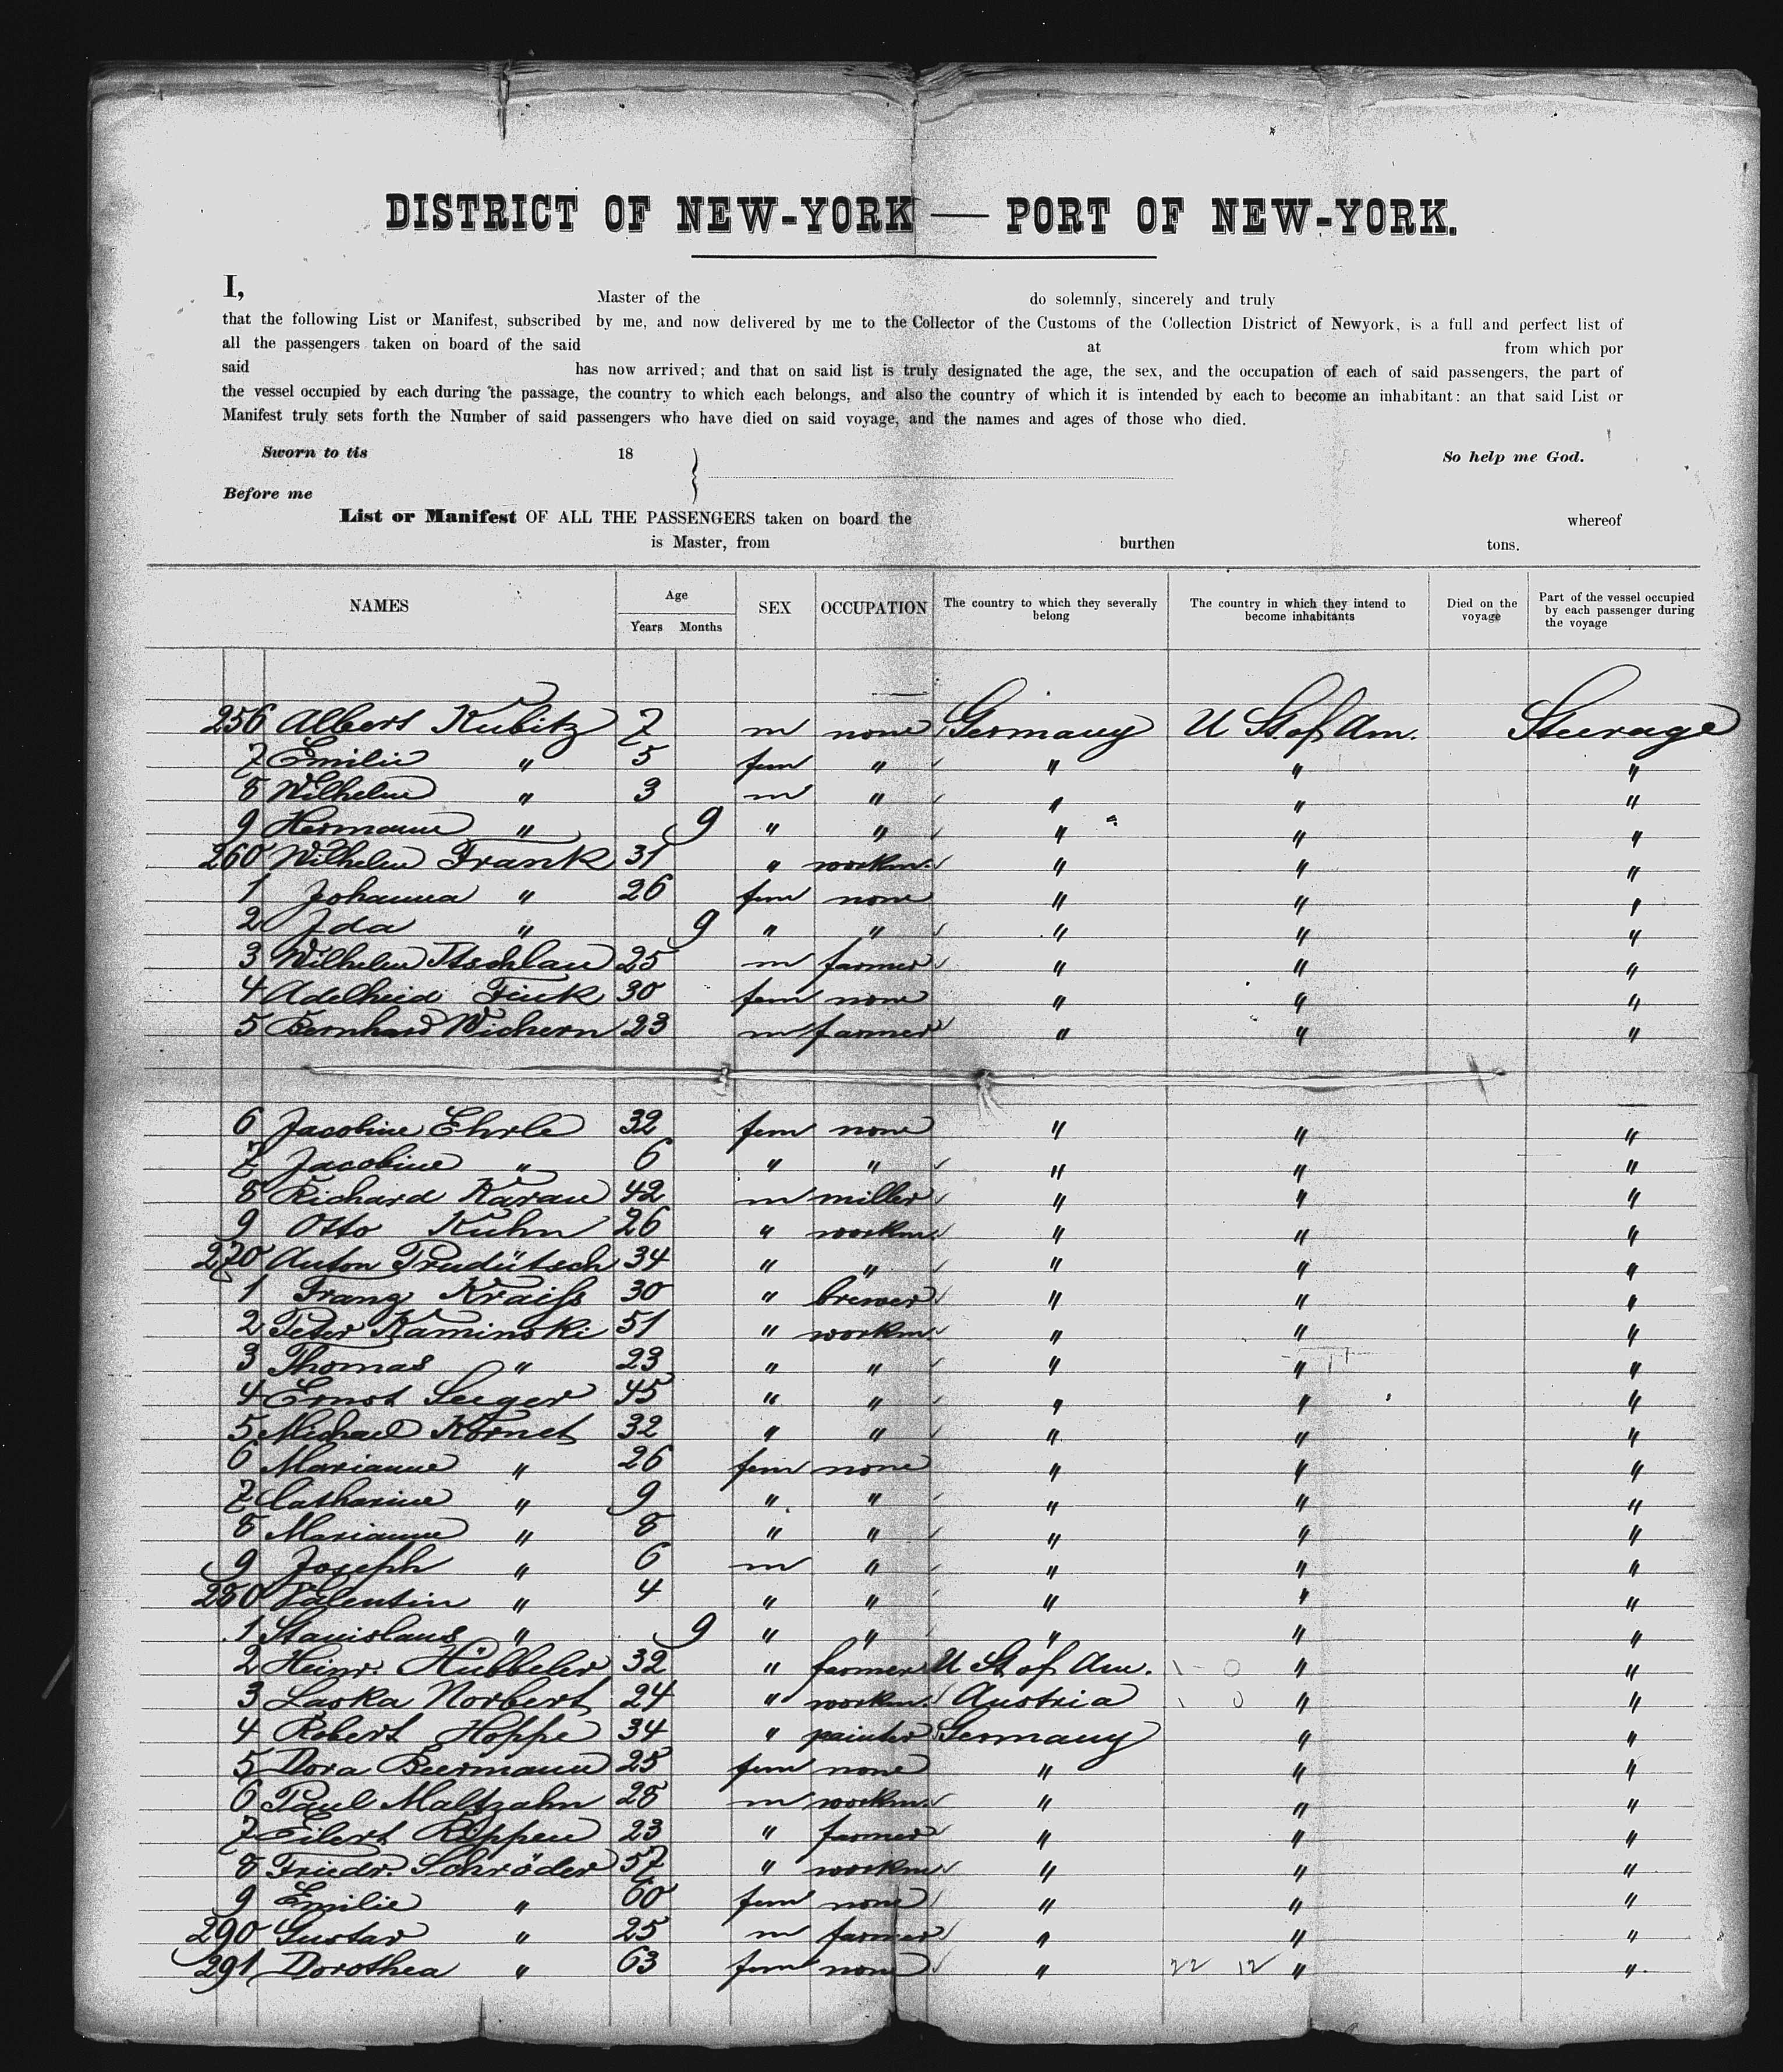 DISTRICT OF NEW-YORK — PORT OF NEW-YORK.
I, Master of the do solemnly, sincerely and truly
that the following List or Manifest, subscribed by me, and now delivered by me to the Collector of the Customs of the Collection District of Newyork, is a full and perfect list of
all the passengers taken on board of the said at from which por
said has now arrived; and that on said list is truly designated the age, the sex, and the occupation of each of said passengers, the part of
the vessel occupied by each during the passage, the country to which each belongs, and also the country of which it is intended by each to become an inhabitant: an that said List or
Manifest truly sets forth the Number of said passengers who have died on said voyage, and the names and ages of those who died.
Sworn to tis 18 So help me God.
Before me
List or Manifest OF ALL THE PASSENGERS taken on board the whereof
is Master, from burthen tons.
NAMES Age Years Months SEX OCCUPATION The country to which they severally belong The country in which they intend to become inhabitants Died on the voyage Part of the vessel occupied by each passenger during the voyage
256 Albert Kubitz 7 m none Germany U St of Am. Steerage
7 Emilie " 5 fem " " " "
8 Wilhelm " 3 m " " " "
9 Hermann " 9 " " " " "
260 Wilhelm Frank 31 " workm. " " "
1 Johanna " 26 fem none " " "
2 Ida " 9 " " " " "
3 Wilhelm 25 m farmer " " "
4 Adelheid Fink 30 fem none " " "
5 Bernhard Wichern 23 m farmer " " "
6 Jacobine Ehrle 32 fem none " " "
7 Jacobine " 6 " " " " "
8 Richard Karau 42 m miller " " "
9 Otto Kuhn 26 " workm. " " "
270 Anton Prudütsch 34 " " " " "
1 Franz Kraiss 30 " brewer " " "
2 Peter Kaminski 51 " workm. " " "
3 Thomas " 23 " " " " "
4 Ernst Seeger 45 " " " " "
5 Michael Kornet 32 " " " " "
6 Marianne " 26 fem none " " "
7 Catharine " 9 " " " " "
8 Marianne " 8 " " " " "
9 Joseph " 6 m " " " "
280 Valentin " 4 " " " " "
1 Stanislaus " 9 " " " " "
2 Heinr. Hübbeler 32 " farmer U St of Am. " "
3 Laska Norbert 24 " workm. Austria " "
4 Robert Hoppe 34 " painter Germany " "
5 Dora Biermann 25 fem none " " "
6 Paul Maltzahn 28 m workm. " " "
7 Eilert Rippen 23 " farmer " " "
8 Friedr. Schröder 57 " workm " " "
9 Emilie " 60 fem none " " "
290 Gustav " 25 m farmer " " "
291 Dorothea " 63 fem none " 22 12 " "